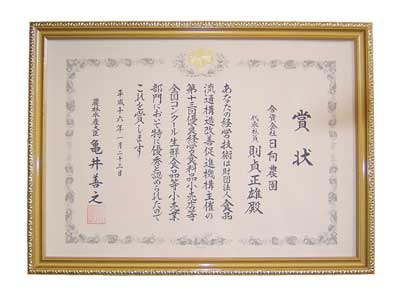 賞状
合資会社 日向農園
代表社員 則貞正雄殿
あなたの経営技術は財団法人食品
流通構造改善促進機構主催の
第十三回優良経営食料品小売店等
全国コンクール生鮮食品等小売業
部門において特に優秀と認められたので
これを賞します
平成十六年一月二十三日
農林水産大臣 亀井善之